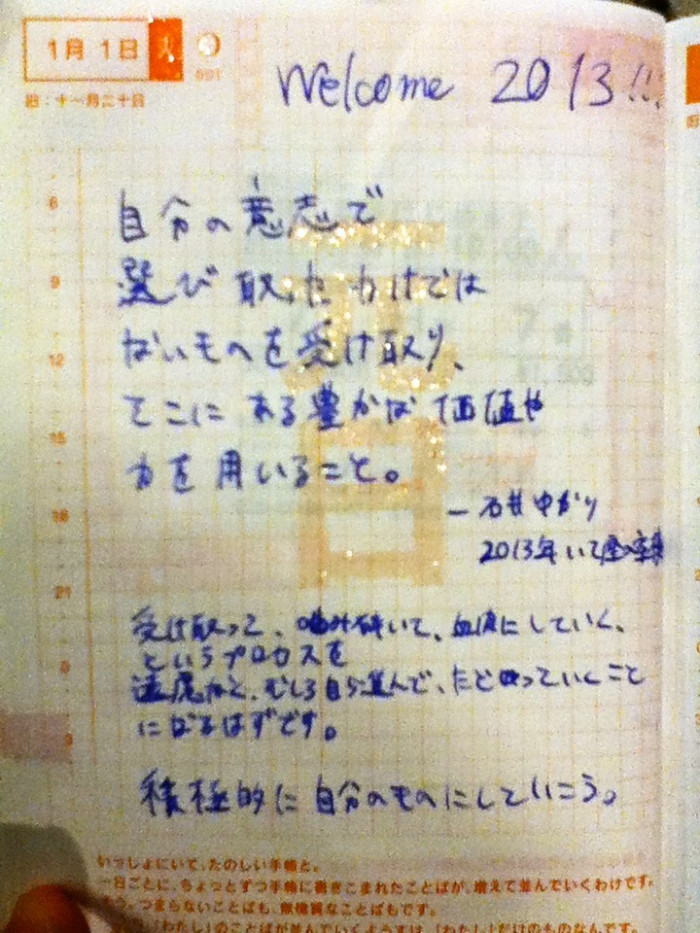 1月1日 火
001
旧:十一月二十日
Welcome 2013!!!
6
9
12
15
18
21
0
3
元日
自分の意志で
選び取ったわけでは
ないものを受け取り、
そこにある豊かな価値や
力を用いること。
― 石井ゆかり
2013年いて座
受け取って、噛み砕いて、血液にしていく、
というプロセスを
むしろ自ら進んで、たどっていくこと
になるはずです。
積極的に自分のものにしていこう。
いっしょにいて、たのしい手帳と。
一日ごとに、ちょっとずつ手帳に書きこまれたことばが、増えて並んでいくわけです。
そう。つまらないことばも、無機質なことばもです。
「わたし」のことばが並んでいくようすは、「わたし」だけのものなんです。